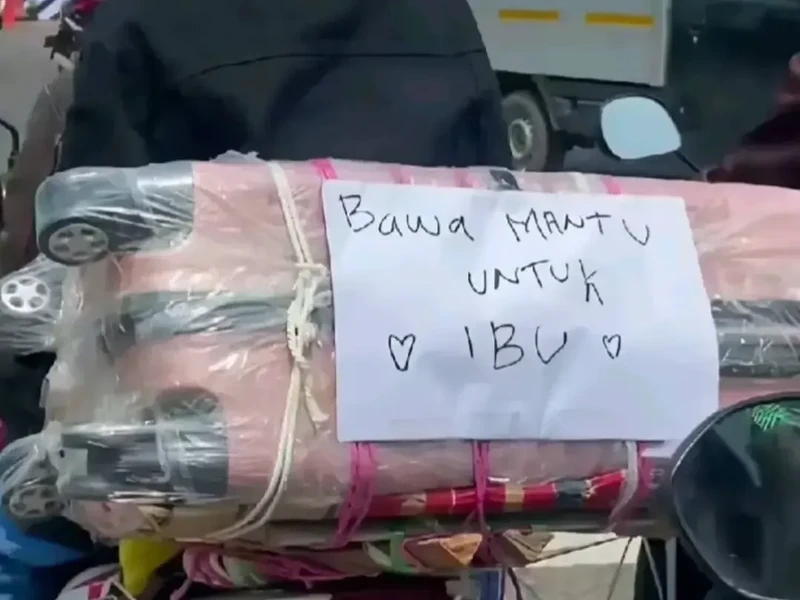 Bawa MANTU
UNTUk
♡ IBU ♡